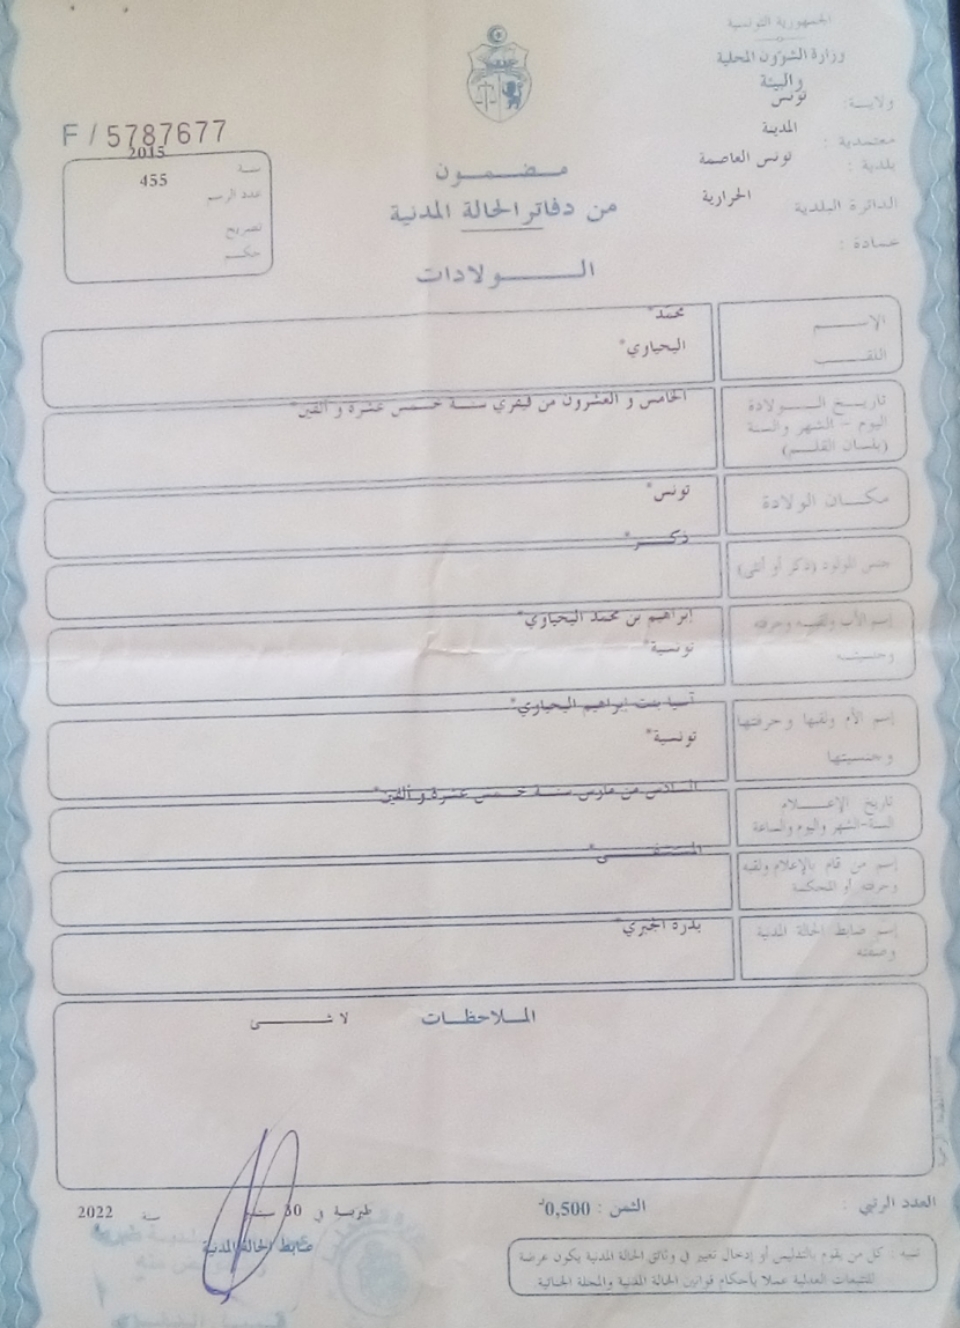 الجمهورية التونسية
وزارة الشؤون المحلية
والبيئة
ولاية: تونس
معتمدية : المدينة
بلدية : تونس العاصمة
الدائرة البلدية الحرارية
عمادة :
F / 5787677
سنة 2015
عدد الرسم 455
تصريح
حكم
مضمون
من دفاتر الحالة المدنية
الولادات
الإسم محمد*
اللقب اليحياوي*
تاريخ الولادة الخامس و العشرون من فيفري سنة خمس عشرة و ألفين*
اليوم - الشهر والسنة
(بلسان القلم)
مكان الولادة تونس*
جنس المولود (ذكر أو أنثى) ذكر*
إسم الأب ولقبه وحرفته إبراهيم بن محمد اليحياوي*
وجنسيته تونسية*
إسم الأم ولقبها وحرفتها آسيا بنت إبراهيم اليحياوي*
وجنسيتها تونسية*
تاريخ الإعلام السادس من مارس سنة خمس عشرة و ألفين*
السنة-الشهر واليوم والساعة
إسم من قام بالإعلام ولقبه المستشفى*
وحرفته أو المحكمة
إسم ضابط الحالة المدنية بدرة الجبري*
وصفته
الملاحظات لا شئ
العدد الرتبي :
الثمن : 0,500د
طبربة في 30 سنة 2022
ضابط الحالة المدنية
تنبيه : كل من يقوم بالتدليس أو إدخال تغيير في وثائق الحالة المدنية يكون عرضة
للتتبعات العدلية عملا بأحكام قوانين الحالة المدنية والمجلة الجنائية